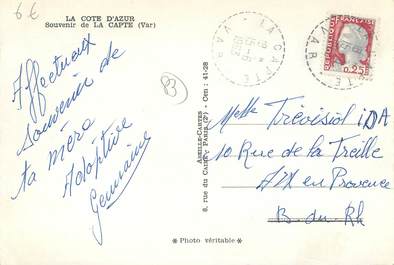 6€
LA COTE D'AZUR
Souvenir de LA CAPTE (Var)
Affectueux
souvenir de
ta mère
Adoptive
Germaine
83
ABEILLE-CARTES
8, rue du Caire - PARIS (2e) - Cen : 41-28
LA CAPTE
VAR
REPUBLIQUE FRANÇAISE
0,25
Melle Trévisiol IDA
10 Rue de la Treille
AIX en Provence
B. du Rh
* Photo véritable *